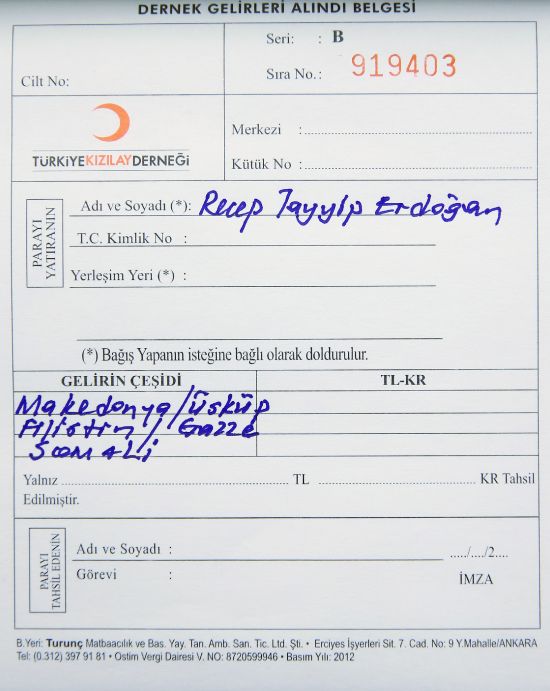 DERNEK GELİRLERİ ALINDI BELGESİ
Seri: : B
Cilt No:
Sıra No.: 919403
TÜRKİYEKIZILAYDERNEĞİ
Merkezi :
Kütük No :
PARAYI YATIRANIN
Adı ve Soyadı (*): Recep Tayyip Erdoğan
T.C. Kimlik No :
Yerleşim Yeri (*) :
(*) Bağış Yapanın isteğine bağlı olarak doldurulur.
GELİRİN ÇEŞİDİ TL-KR
Makedonya/üsküp
Filistin/ Gazze
SomaLi
Yalnız TL KR Tahsil
Edilmiştir.
PARAYI TAHSİL EDENİN
Adı ve Soyadı : ...../..../2....
Görevi : İMZA
B.Yeri: Turunç Matbaacılık ve Bas. Yay. Tan. Amb. San. Tic. Ltd. Şti. • Erciyes İşyerleri Sit. 7. Cad. No: 9 Y.Mahalle/ANKARA
Tel: (0.312) 397 91 81 • Ostim Vergi Dairesi V. NO: 8720599946 • Basım Yılı: 2012